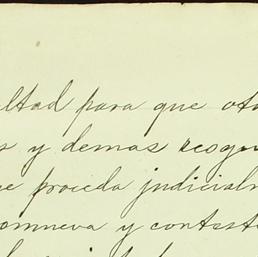 ultad para que oto
s y demas recogu
e proceda judicialm
omueva y contest